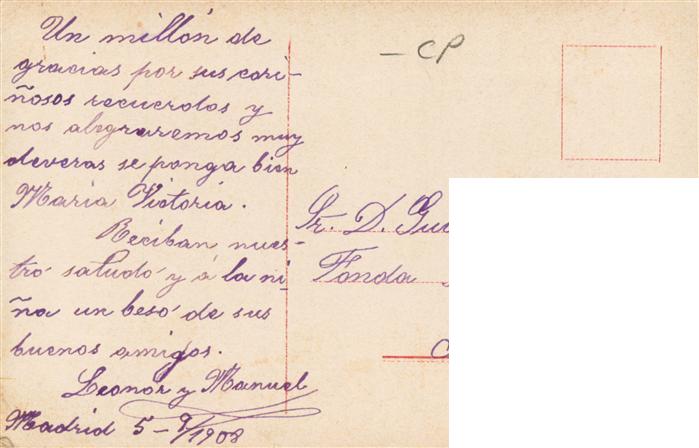 Un millón de
gracias por sus cari-
ñosos recuerdos y
nos alegraremos muy
deveras se ponga bien
Maria Victoria.
Reciban nues-
tro saludo y á la ni-
ña un beso de sus
buenos amigos.
Leonor y Manuel
Madrid 5-9/1908
- CP
Sr. D.
Fonda